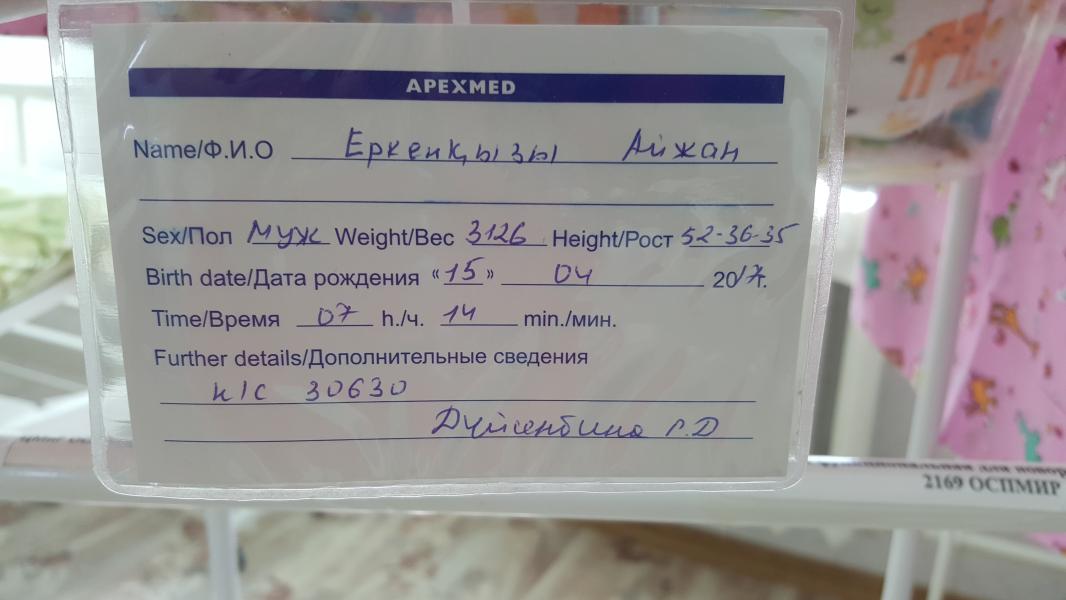 APEXMED
Name/Ф.И.О Еркенқызы Айжан
Sex/Пол муж Weight/Вес 3126 Height/Рост 52-36-35
Birth date/Дата рождения «15» 04 2017г.
Time/Время 07 h./ч. 14 min./мин.
Further details/Дополнительные сведения
и/с 30630
Дуйсенбина Г.Д
для новор
2169 ОСПМИР